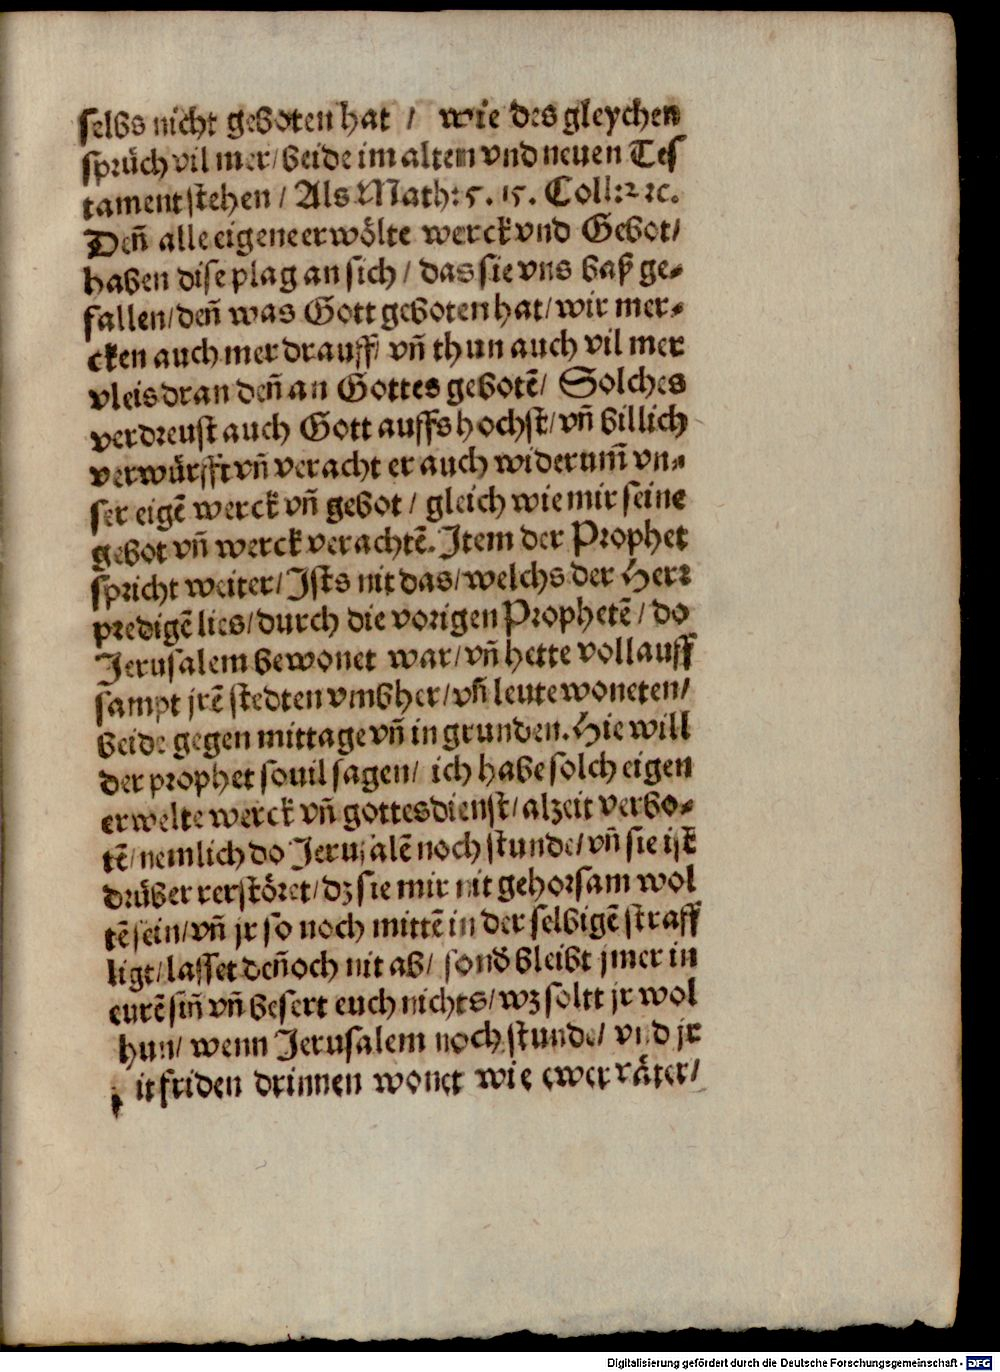 selbs nicht geboten hat / wie des gleychen
sprüch vil mer/ beide im alten vnd neuen Tes
tament stehen / Als Math: 5. 15. Coll: 2 ꝛc.
Deñ alle eigene erwölte werck vnd Gebot/
haben dise plag an sich / das sie vns baß ge-
fallen/ deñ was Gott geboten hat/ wir mer-
cken auch mer drauff/ vñ thun auch vil mer
vleis dran deñ an Gottes gebotē/ Solches
verdreust auch Gott auffs hochst/ vñ billich
verwürfft vñ veracht er auch widerum̃ vn-
ser eigē werck vñ gebot / gleich wie mir seine
gebot vñ werck verachtē. Item der Prophet
spricht weiter/ Ists nit das/ welchs der Herr
predigē lies/ durch die vorigen Prophetē / do
Jerusalem bewonet war/ vñ hette vollauff
sampt jrē stedten vmbher/ vñ leute woneten/
beide gegen mittage vñ in grunden. Hie will
der prophet souil sagen/ ich habe solch eigen
erwelte werck vñ gottesdienst/ alzeit verbo-
tē/ nemlich do Jerusalē noch stunde/ vñ sie ist
drüber rerstöret/ dz sie mir nit gehorsam wol
tē sein/ vñ jr so noch mittē in der selbigē straff
ligt/ lasset deñoch nit ab/ sond̾ bleibt jmer in
eurē siñ vñ besert euch nichts/ wz soltt jr wol
hun/ wenn Jerusalem noch stunde/ vnd jr
it friden drinnen wonet wie ewer väter/
Digitalisierung gefördert durch die Deutsche Forschungsgemeinschaft - DFG